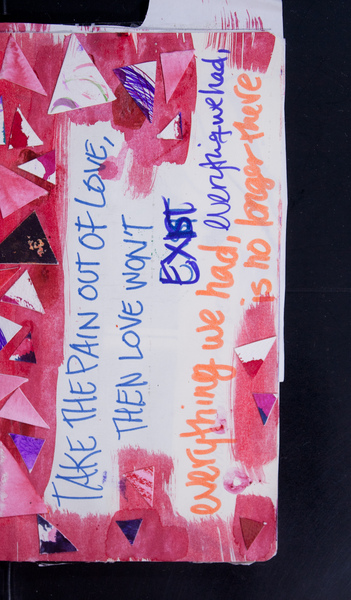 TAKE THE PAIN OUT OF LOVE,
THEN LOVE WON'T
EXIST
everything we had, everything we had,
is no longer there